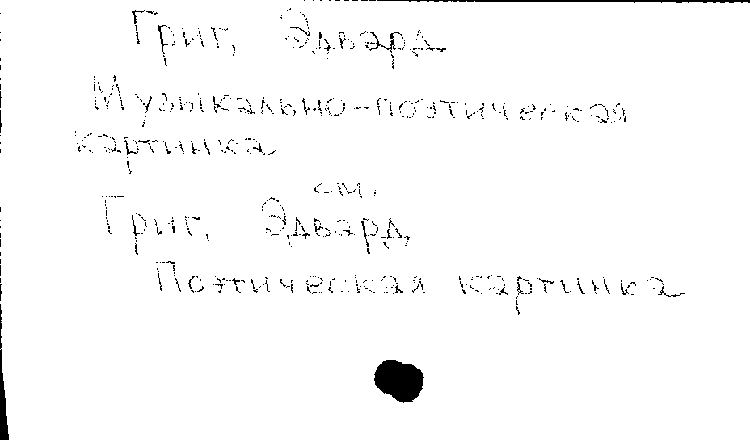 Григ, Эдвард
Музыкально-поэтическая
картинка
см.
Григ, Эдвард
Поэтическая картинка